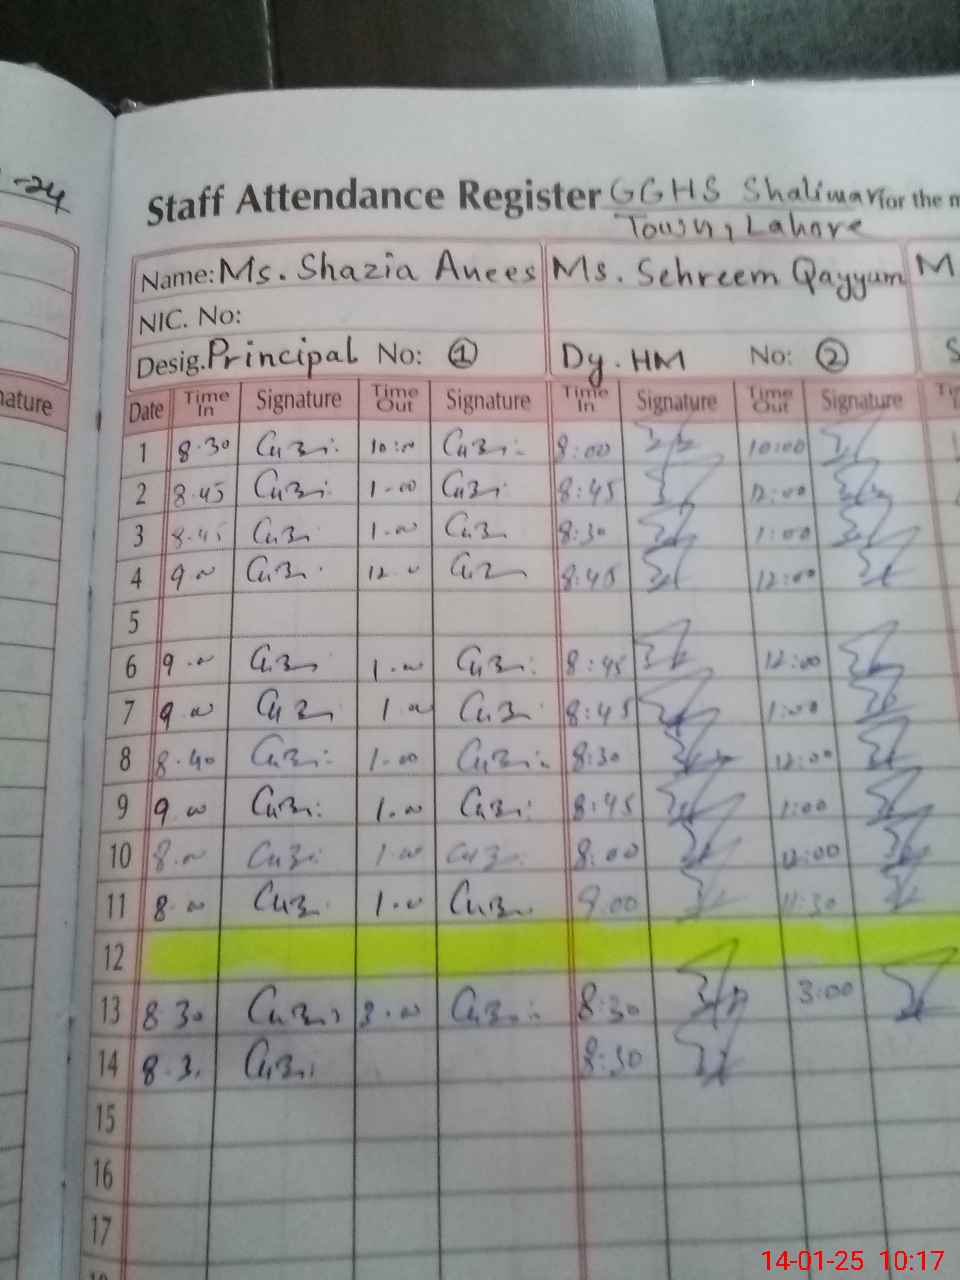 -24
Staff Attendance Register GGHS Shalimar for the m
Town, Lahore
Name: Ms. Shazia Anees Ms. Sehreem Qayyum M
NIC. No:
Desig. Principal No: 1 Dy. HM No: 2 S
nature Date Time In Signature Time Out Signature Time In Signature Time Out Signature
1 8.30 10:00 8:00 10:00
2 8.45 1.00 8:45 12:00
3 8.45 1.00 8:30 1:00
4 9.00 12.00 8:45 12:00
5
6 9.00 1.00 8:45 12:00
7 9.00 1.00 8:45 1:00
8 8.40 1.00 8:30 12:00
9 9.00 1.00 8:45 1:00
10 8.00 1.00 8:00 12:00
11 8.00 1.00 9.00 11:30
12
13 8.30 3.00 8:30 3:00
14 8.3 8:30
15
16
17
14-01-25 10:17